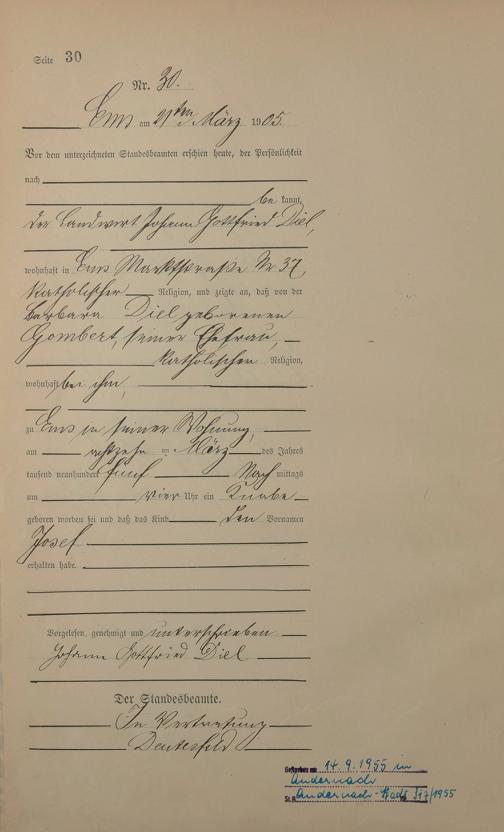 Seite 30
Nr. 30.
Ems am 21ten März 1905.
Vor dem unterzeichneten Standesbeamten erschien heute, der Persönlichkeit
nach
be kannt,
der Landwirt Johann Gottfried Diel,
wohnhaft in Ems Marktstraße Nr 37,
katholischer Religion, und zeigte an, daß von der
Barbara Diel geborenen
Gombert, seiner Ehefrau,
katholischen Religion,
wohnhaft bei ihm,
zu Ems in seiner Wohnung,
am achtzehn im März des Jahres
tausend neunhundert fünf Nach mittags
um vier Uhr ein Knabe
geboren worden sei und daß das Kind den Vornamen
Josef
erhalten habe.
Vorgelesen, genehmigt und unterschrieben
Johann Gottfried Diel
Der Standesbeamte.
In Vertretung
Gestorben am 14.9.1955 in
Andernach
St.A. Andernach-Stadt 217/1955